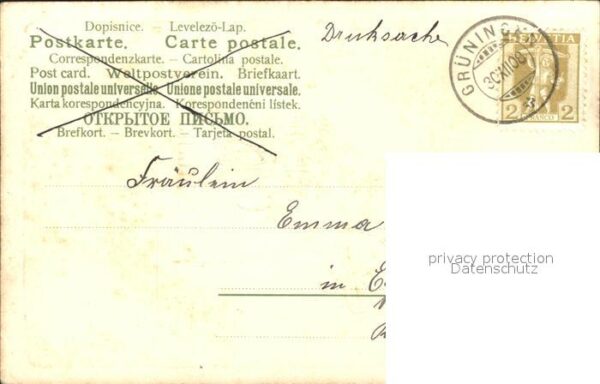 Dopisnice. — Levelező-Lap.
Postkarte. Carte postale.
Correspondenzkarte. — Cartolina postale.
Post card. Weltpostverein. Briefkaart.
Union postale universelle. Unione postale universale.
Karta korespondencyjna. Korespondenční lístek.
ОТКРЫТОЕ ПИСЬМО.
Brefkort. — Brevkort. — Tarjeta postal.
Drucksache
GRÜNINGEN
30.XII.08
HELVETIA
2 2
FRANCO
Fräulein
Emma
in
privacy protection
Datenschutz